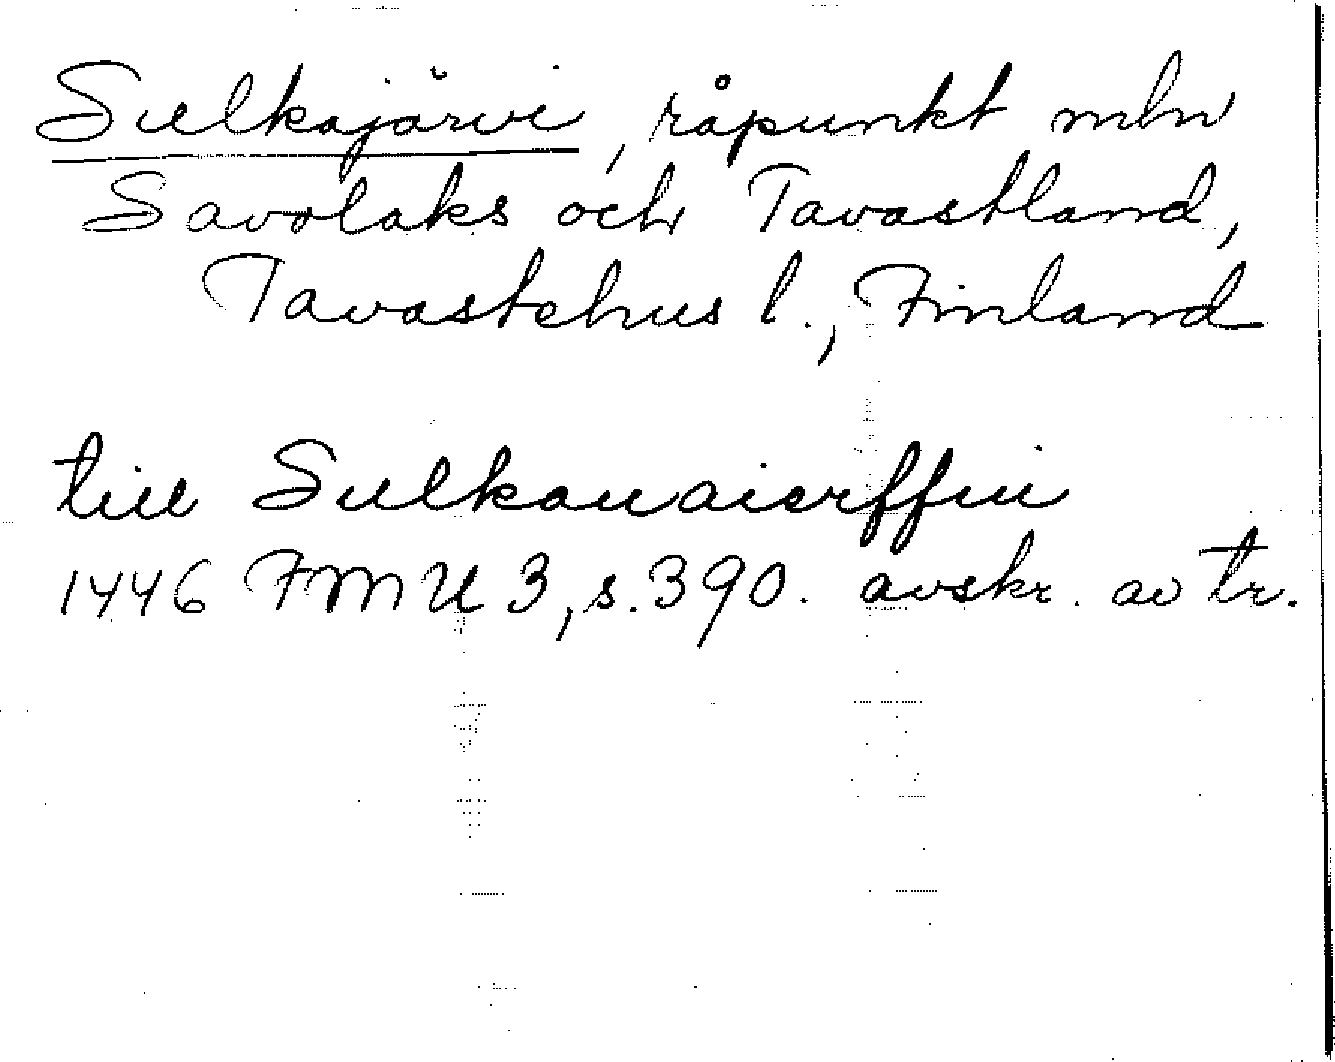 Sulkajärvi, råpunkt mln
Savolaks och Tavastland,
Tavastehus l., Finland
till Sulkauaierffui
1446 FMU 3, s. 390. avskr. av tr.